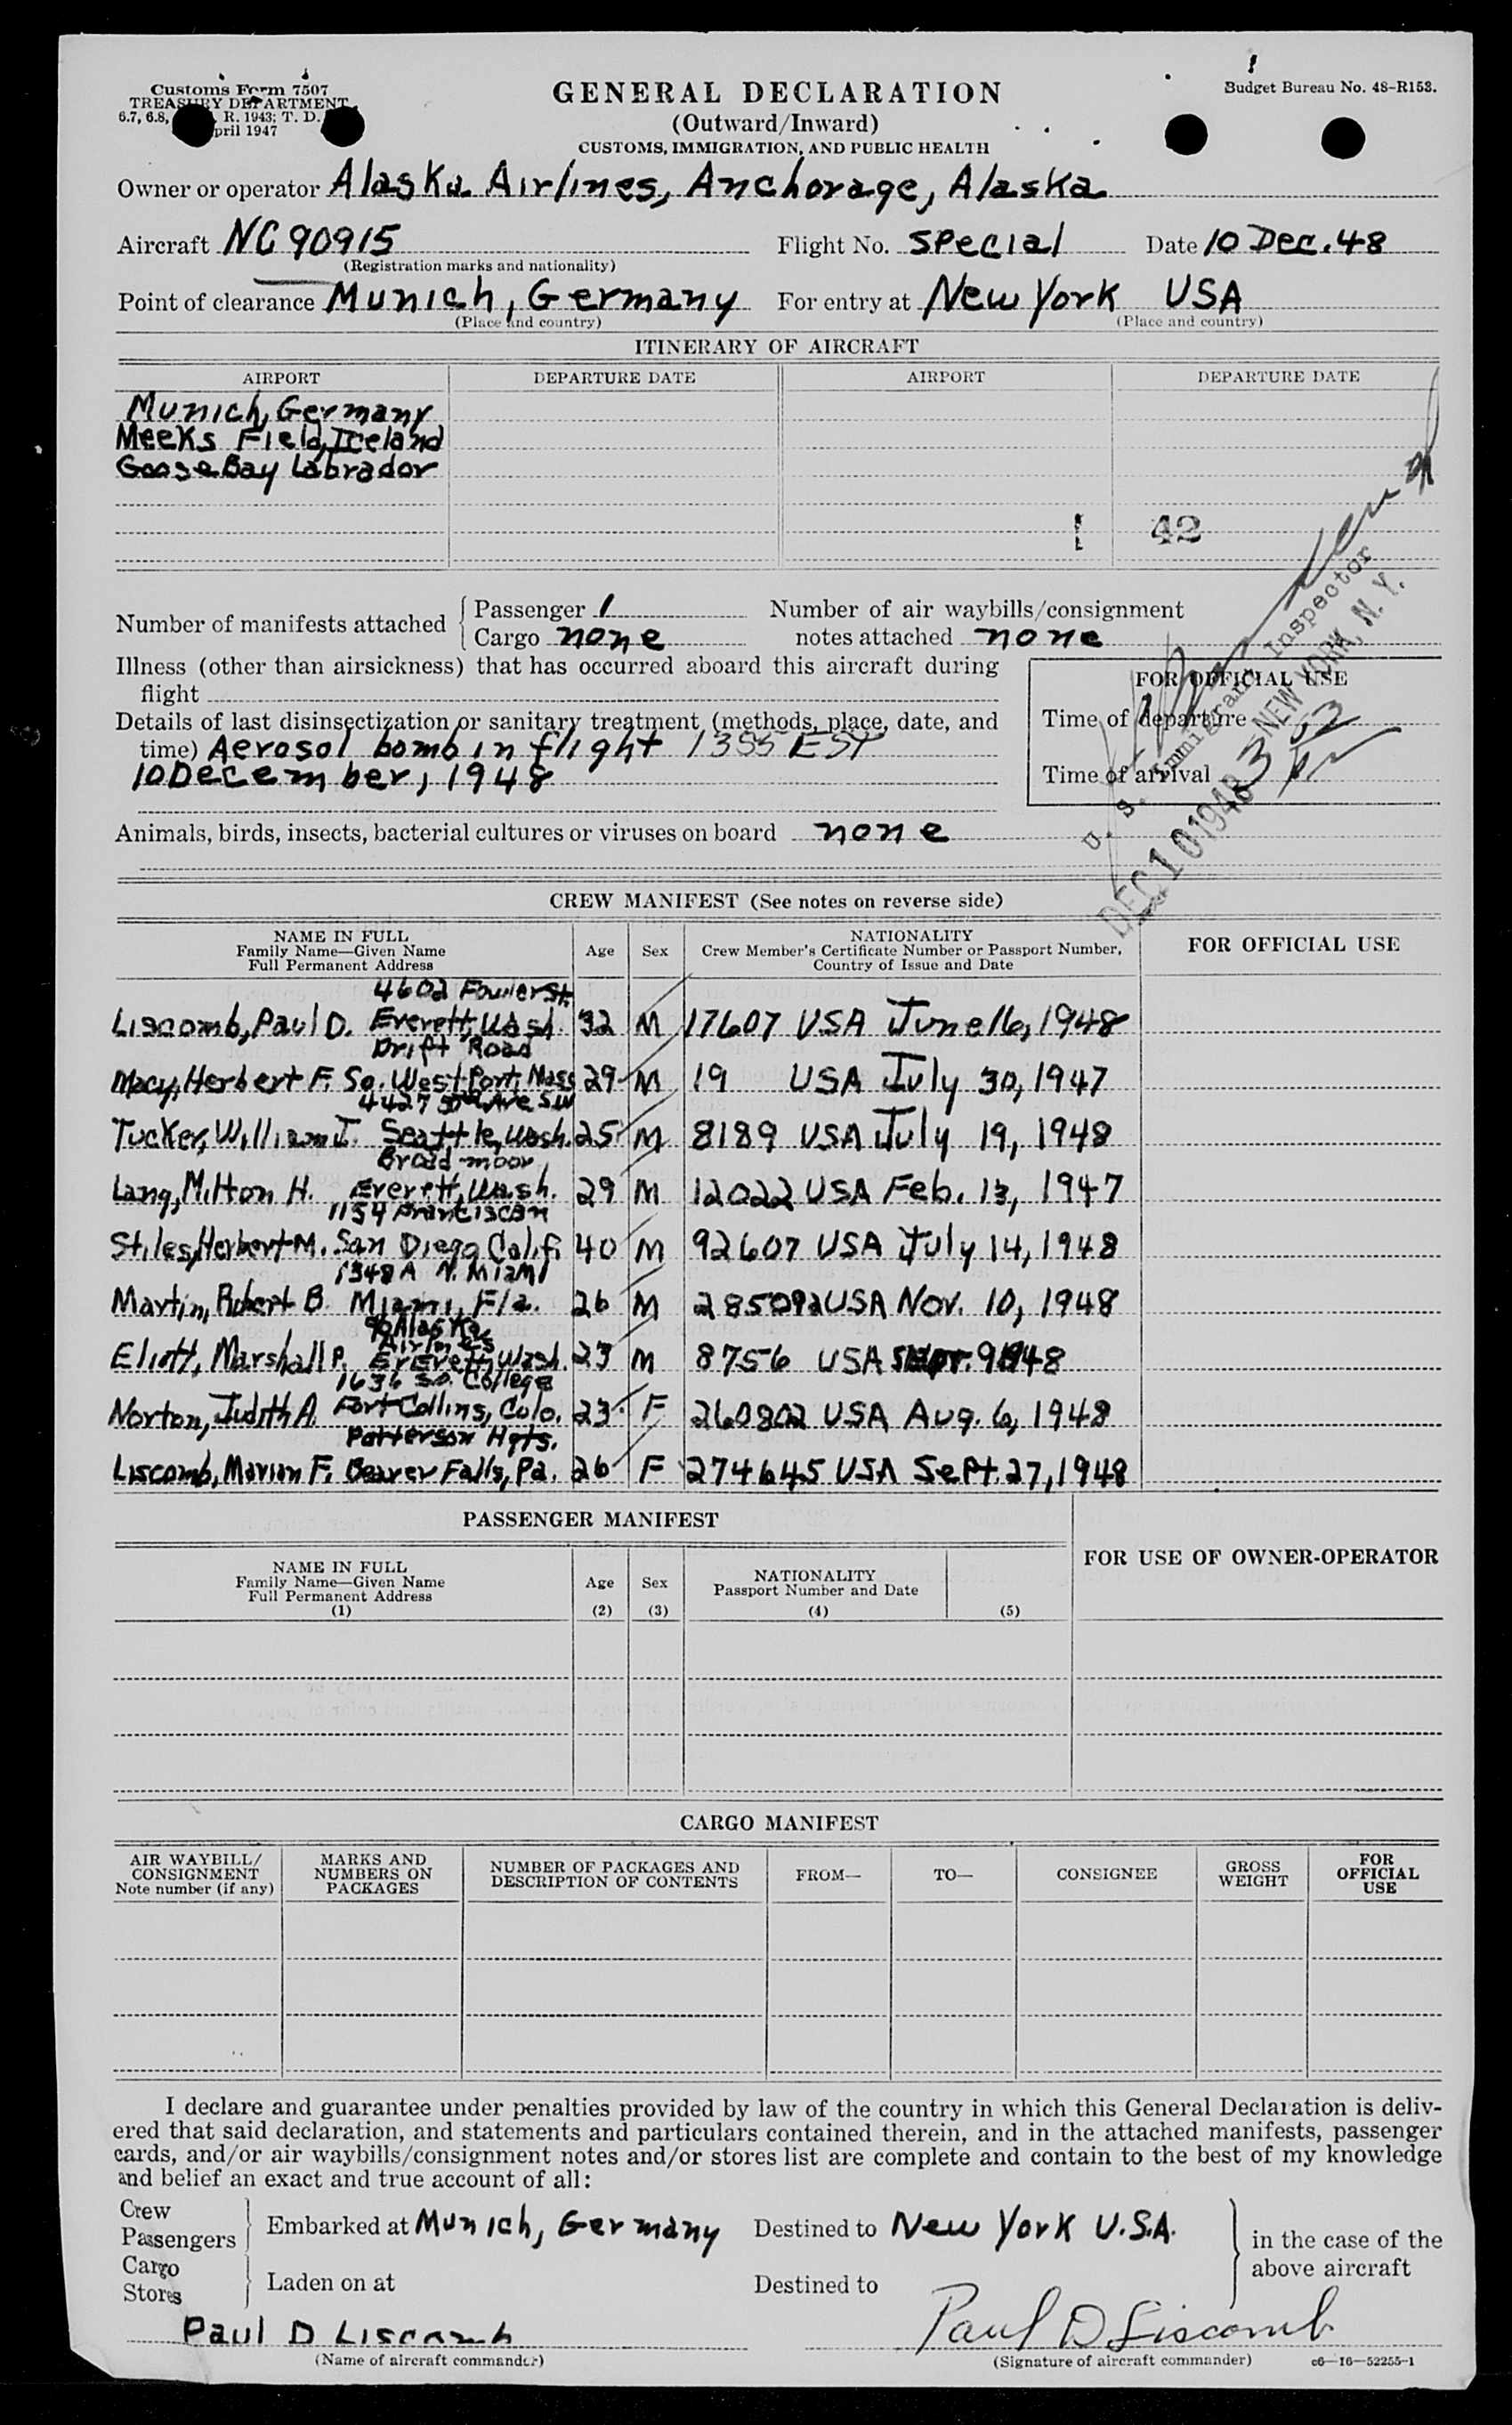 Customs Form 7507
TREASURY DEPARTMENT
6.7, 6.8, R. 1943; T. D.
pril 1947
GENERAL DECLARATION
(Outward/Inward)
CUSTOMS, IMMIGRATION, AND PUBLIC HEALTH
Budget Bureau No. 48-R153.
Owner or operator Alaska Airlines, Anchorage, Alaska
Aircraft NC90915 Flight No. Special Date 10 Dec. 48
(Registration marks and nationality)
Point of clearance Munich, Germany For entry at New York USA
(Place and country) (Place and country)
ITINERARY OF AIRCRAFT
AIRPORT DEPARTURE DATE AIRPORT DEPARTURE DATE
Munich, Germany
Meeks Field, Iceland
Goose Bay Labrador
42
Number of manifests attached Passenger 1 Number of air waybills/consignment
Cargo none notes attached none
Illness (other than airsickness) that has occurred aboard this aircraft during
flight
Details of last disinsectization or sanitary treatment (methods, place, date, and
time) Aerosol bomb in flight 1355 EST
10 December, 1948
FOR OFFICIAL USE
Time of departure
Time of arrival 3 52 PM
U. S. Immigrant Inspector
DEC 10 1948 NEW YORK, N. Y.
Animals, birds, insects, bacterial cultures or viruses on board none
CREW MANIFEST (See notes on reverse side)
NAME IN FULL
Family Name—Given Name
Full Permanent Address
Age Sex
NATIONALITY
Crew Member's Certificate Number or Passport Number,
Country of Issue and Date
FOR OFFICIAL USE
4602 Fowler St.
Liscomb, Paul D. Everett, Wash. 32 M 17607 USA June 16, 1948
Drift Road
Macy, Herbert F. So. Westport, Mass 29 M 19 USA July 30, 1947
4427 50th Ave SW
Tucker, William J. Seattle, Wash. 25 M 8189 USA July 19, 1948
Broad-moor
Lang, Milton H. Everett, Wash. 29 M 12022 USA Feb. 13, 1947
1154 Franciscan
Stiles, Herbert M. San Diego Calif. 40 M 92607 USA July 14, 1948
1348A N. Miami
Martin, Robert B. Miami, Fla. 26 M 285092 USA Nov. 10, 1948
% Alaska
Airlines
Eliott, Marshall P. Everett, Wash. 23 M 8756 USA Sept. 9 1948
1636 So. College
Norton, Judith A. Fort Collins, Colo. 23 F 260802 USA Aug. 6, 1948
Patterson Hgts.
Liscomb, Marion F. Beaver Falls, Pa. 26 F 274645 USA Sept. 27, 1948
PASSENGER MANIFEST
FOR USE OF OWNER-OPERATOR
NAME IN FULL
Family Name—Given Name
Full Permanent Address
(1)
Age
(2)
Sex
(3)
NATIONALITY
Passport Number and Date
(4)
(5)
CARGO MANIFEST
AIR WAYBILL/
CONSIGNMENT
Note number (if any)
MARKS AND
NUMBERS ON
PACKAGES
NUMBER OF PACKAGES AND
DESCRIPTION OF CONTENTS
FROM—
TO—
CONSIGNEE
GROSS
WEIGHT
FOR
OFFICIAL
USE
I declare and guarantee under penalties provided by law of the country in which this General Declaration is deliv-
ered that said declaration, and statements and particulars contained therein, and in the attached manifests, passenger
cards, and/or air waybills/consignment notes and/or stores list are complete and contain to the best of my knowledge
and belief an exact and true account of all:
Crew
Passengers
Embarked at Munich, Germany Destined to New York U.S.A.
Cargo
Stores
Laden on at Destined to
in the case of the
above aircraft
Paul D Liscomb
(Name of aircraft commander)
Paul D Liscomb
(Signature of aircraft commander)
c6—16—52255-1